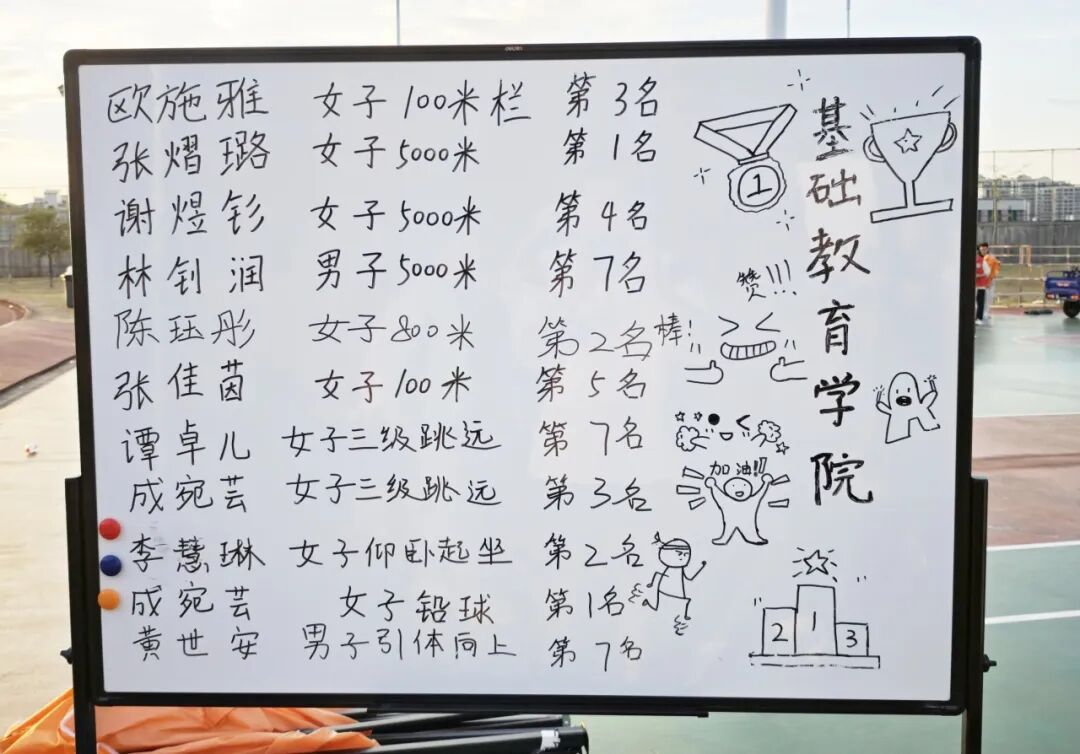 deli
欧施雅 女子100米栏 第3名
张熠璐 女子5000米 第1名
谢煜钐 女子5000米 第4名
林钊润 男子5000米 第7名
陈珏彤 女子800米 第2名
张佳茵 女子100米 第5名
谭卓儿 女子三级跳远 第7名
成宛芸 女子三级跳远 第3名
李慧琳 女子仰卧起坐 第2名
成宛芸 女子铅球 第1名
黄世安 男子引体向上 第7名
基础教育学院
1
赞!!!
棒!
加油!!
2 1 3